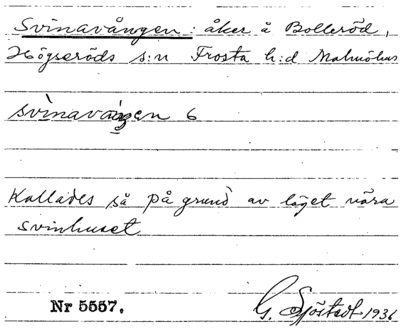 Svinavången: åker å Bolleröd,
Högseröds s:n Frosta h:d Malmöhus
svinavången 6
Kallades så på grund av läget nära
svinhuset
Nr 5557.
G. Sjöstedt 1936